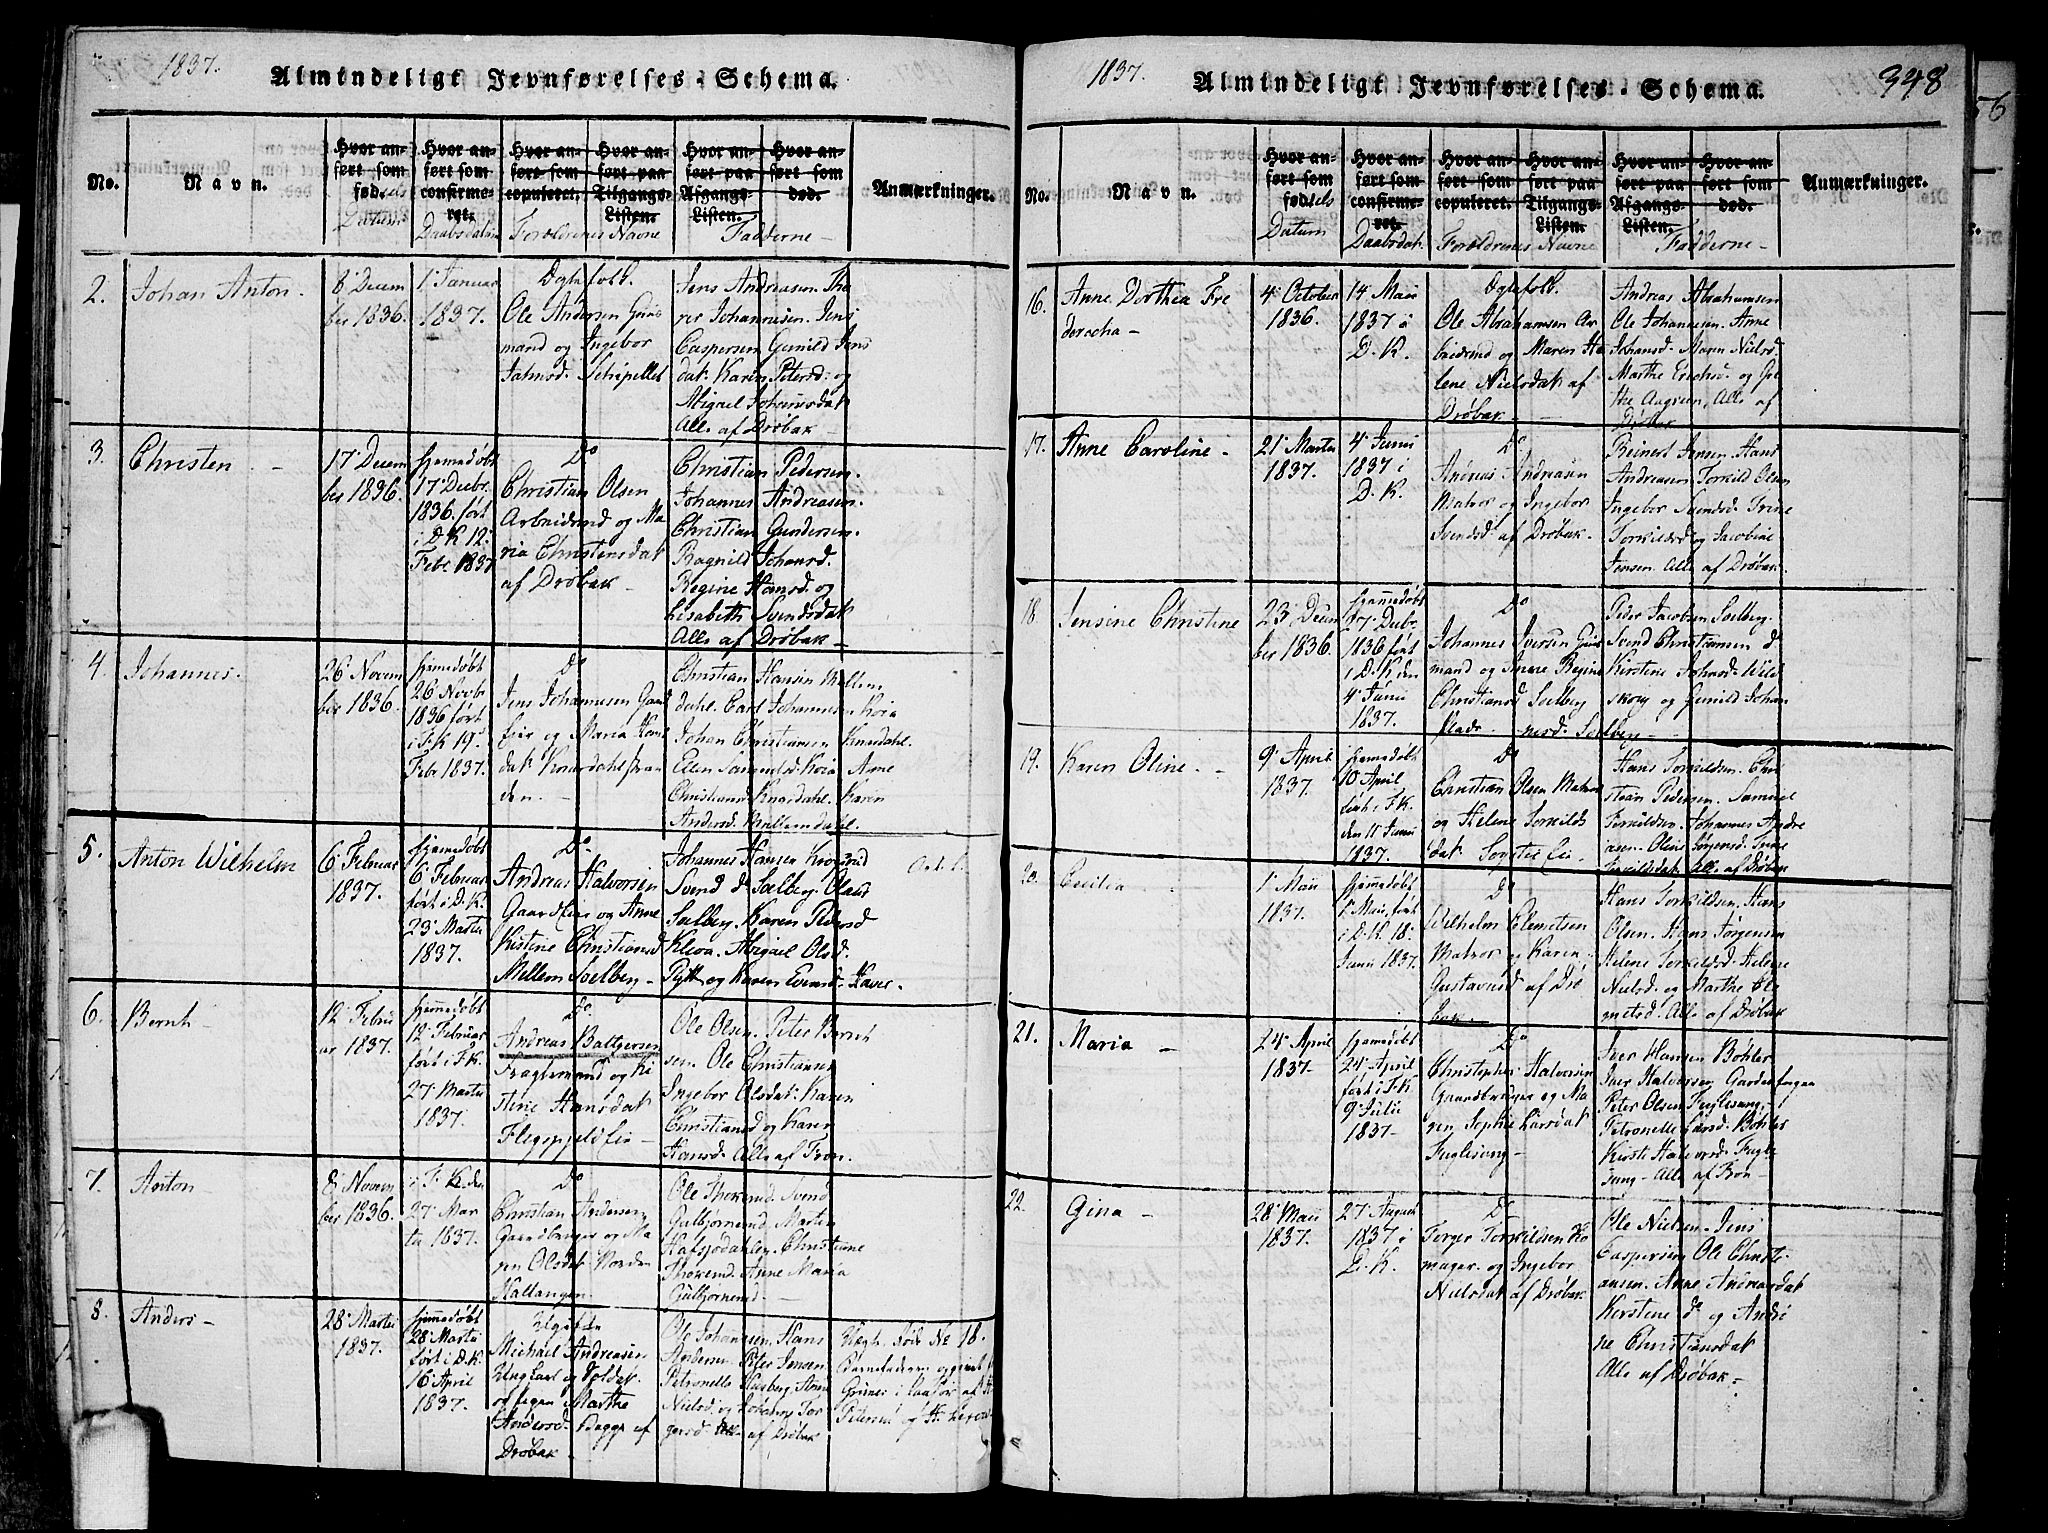 1837.
Almindeligt Jevnførelses-Schema.
No.
Navn.
Hvor an-
ført som
fødsels
Datum
Hvor an-
ført som
confirme-
ret.
Daabsdatum
Hvor an-
ført som
copuleret.
Hvor an-
ført paa
Tilgangs-
Listen.
Forældrenes Navne
Hvor an-
ført paa
Afgangs-
Listen.
Hvor an-
ført som
død.
Fadderne
Anmærkninger.
2.
Johan Anton.
8 Decem
ber 1836.
1 Januar
1837.
Ægtefolk.
Ole Andersen
mand og Ingebor
Jens Andreasen
Johannesen. Jens
Caspersen Gunild Jens
dat. Karen Petersd. og
Abigael Johannesdat
Alle af Drøbak
3.
Christen
17 Decem
ber 1836.
hjemmedøbt
17 Decbr.
1836. ført
i D.K. 12
Febr 1837
Do
Christian Olsen
Arbeidsmd og Ma
ria Christensdat
af Drøbak
Christian Pedersen
Johannes Andreasen
Christian Gundersen
Ragnild Johansd.
Regine Hansd. og
Lisabeth Svendsdat
Alle af Drøbak
4.
Johannes.
26 Novem
ber 1836.
hjemmedøbt
26 Novbr
1836 ført
i F.K. 19
Febr 1837.
Do
Jens Johannesen
og Maria
dat.
den.
Christian Hansen Mellem
dahl. Carl Johannesen
Johan Christiansen Knardahl.
Ellen Samuelsd. Anne
Christiansd Knardahl. Karen
Andersd. Mellemdahl.
5.
Anton Wilhelm
6 Februar
1837.
hjemmedøbt
6 Februar
ført i D.K.
23 Martii
1837.
Do
Andreas Halvorsen
Gaardfeir og Anne
Kistine Christiansd
Mellem Soelberg
Johannes Hansen
Svend do Soelberg. Olaus
Soelberg. Karen Pedersd
Kleva. Abigael Olsd.
og Karen
6.
Bernt
12 Febru
ar 1837.
hjemmedøbt
12 Februar
ført i F.K.
27 Martii
1837.
Do
Andreas Baltzersen
og Ki
stine Hansdat
Ole Olsen. Peter Bernt
sen. Ole Christiansen
Ingebor Olsdat. Karen
Christiansd og Karen
Hansd. Alle af Fron.
7.
Anton
8 Novem
ber 1836.
i F.K. den
27 Mar
tii 1837.
Do
Christian Andersen
Gaardbruger og Ma
ren Olsdat Norden
Hallangen
Ole
Gulbjørnsrud. Martin
Christiane
Anne Maria
Gulbjørnsrud
8.
Anders
28 Martii
1837.
hjemmedøbt
28 Martii
ført i D.K.
16 April
1837.
Ugifte
Michael Andreasen
Ungkarl og Soldat.
og Pigen Marthe
Andersd. Bagge af
Drøbak
Ole Johannesen. Hans
Andersen Peter Jensen
Petronelle Husberg. Anne
Nielsd. og Johanne Tor
gersd. Alle af Drøbak
No 18.
Barnefaderen
1837.
Almindeligt Jevnførelses-Schema.
348
56
No.
Navn.
Hvor an-
ført som
fødsels
Datum
Hvor an-
ført som
confirme-
ret.
Daabsdat.
Hvor an-
ført som
copuleret.
Hvor an-
ført paa
Tilgangs-
Listen.
Forældrenes Navne
Hvor an-
ført paa
Afgangs-
Listen.
Hvor an-
ført som
død.
Fadderne
Anmærkninger.
16.
Anne Dorthea Fre
dericha
4 October
1836.
14 Maii
1837 i
D.K.
Ægtefolk.
Ole Abrahamsen Ar
beidsmd og Maren He
lene Nielsdat af
Drøbak
Andreas Abrahamsen
Ole Johannesen. Anne
Johansd. Maren Nielsd.
Marthe Erichsd. og
Alle af
Drøbak
17.
Anne Caroline
21 Martii
1837.
4 Junii
1837 i
D.K.
Do
Andreas Andreasen
Matros og Ingebor
Svendsd af Drøbak
Reinert Jensen. Hans
Andreasen Torkild Olsen
Ingebor Svendsd. Trine
Torkildsd og Jacobine
Jensen. Alle af Drøbak
18.
Jensine Christine
23 Decem
ber 1836.
hjemmedøbt
27 Decbr.
1836 ført
i D.K. den
4 Junii
1837.
Do
Johannes Iversen
mand og Anne Regine
Christiansd Soelberg
Peder Jacobsen Soelberg.
Svend Christiansen do
Kirstine Johansd. Wild
skov og Gunild Johan
nesd. Soelberg
19.
Karen Oline
9 April
1837.
hjemmedøbt
10 April
i F.K.
den 11 Junii
1837.
Do
Christian Olsen Matros
og Helene Torkilds
dat
Hans Torkildsen. Chri
stian Pedersen. Samuel
Torkildsen. Johannes Andre
asen. Trine
Torkildsdat. Alle af Drøbak
20.
Cecilia
1 Maii
1837.
hjemmedøbt
1 Maii, ført
i D.K. 18
Junii 1837.
Do
Wilhelm Clemetsen
Matros og Karen
Gustavusd af Drø
bak
Hans Torkildsen. Hans
Olsen. Hans Jørgensen
Helene Torkildsd. Helene
Nielsd. og Marthe Cle
metsd. Alle af Drøbak
21.
Maria
24 April
1837.
hjemmedøbt
24 April
ført i F.K.
9 Julii
1837
Do
Christopher Halvorsen
Gaardbruger og Ma
ren Sophie Larsdat
Fuglesang
Iver Hansen Bøhler
Iver Halvorsen
Peter Olsen Fuglesang.
Petronelle Larsd. Bøhler
Kirsti Halvorsd. Fugle
sang. Alle af Fron
22.
Gina
28 Maii
1837.
27 August
1837 i
D.K.
Do
Torger Torkildsen Skø
mager. og Ingebor
Nielsdat af Drøbak
Ole Nielsen. Jens
Caspersen Ole Christi
ansen. Anne Andreasdat
Kirstine do og Andri
ne Christiansdat
Alle af Drøbak